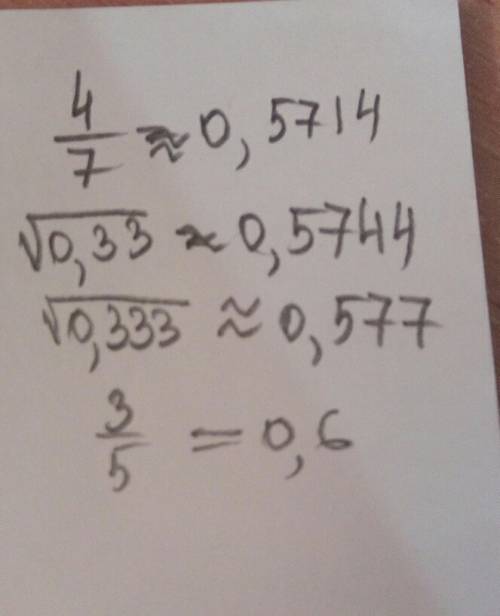 4/7 ≈ 0,5714
√0,33 ≈ 0,5744
√0,333 ≈ 0,577
3/5 = 0,6